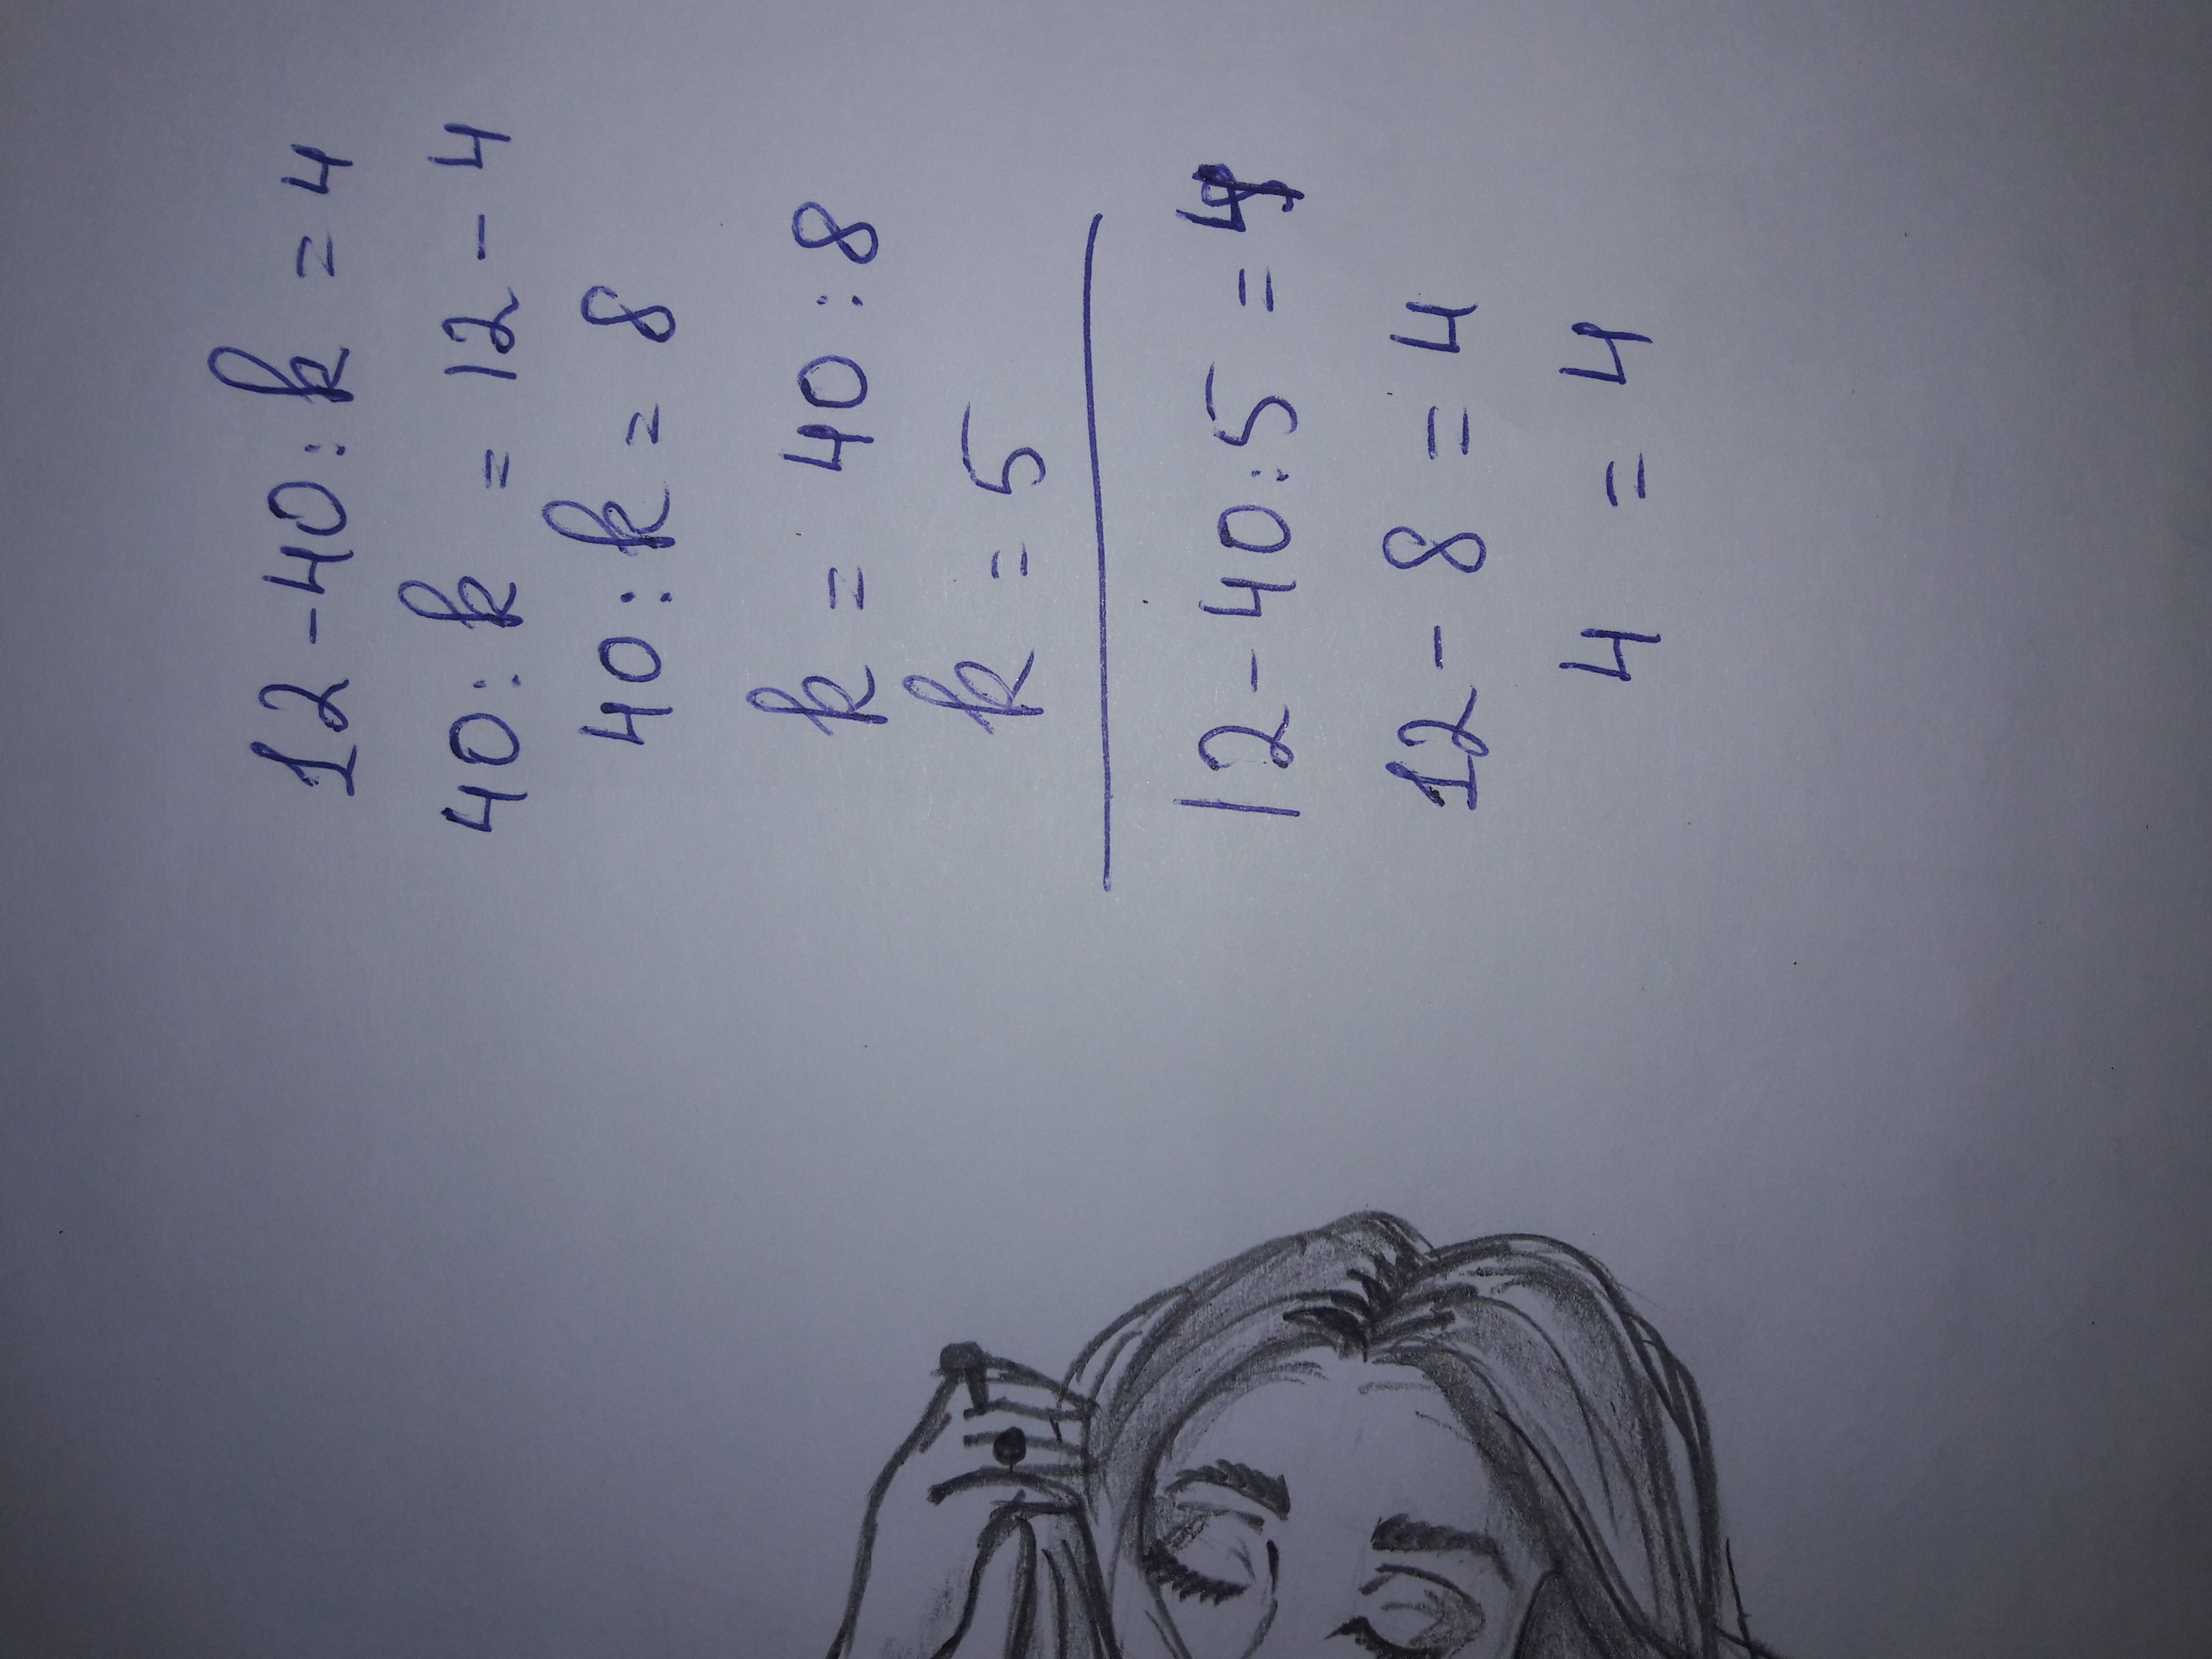 12-40:k=4
40:k=12-4
40:k=8
k=40:8
k=5
12-40:5=4
12-8=4
4=4